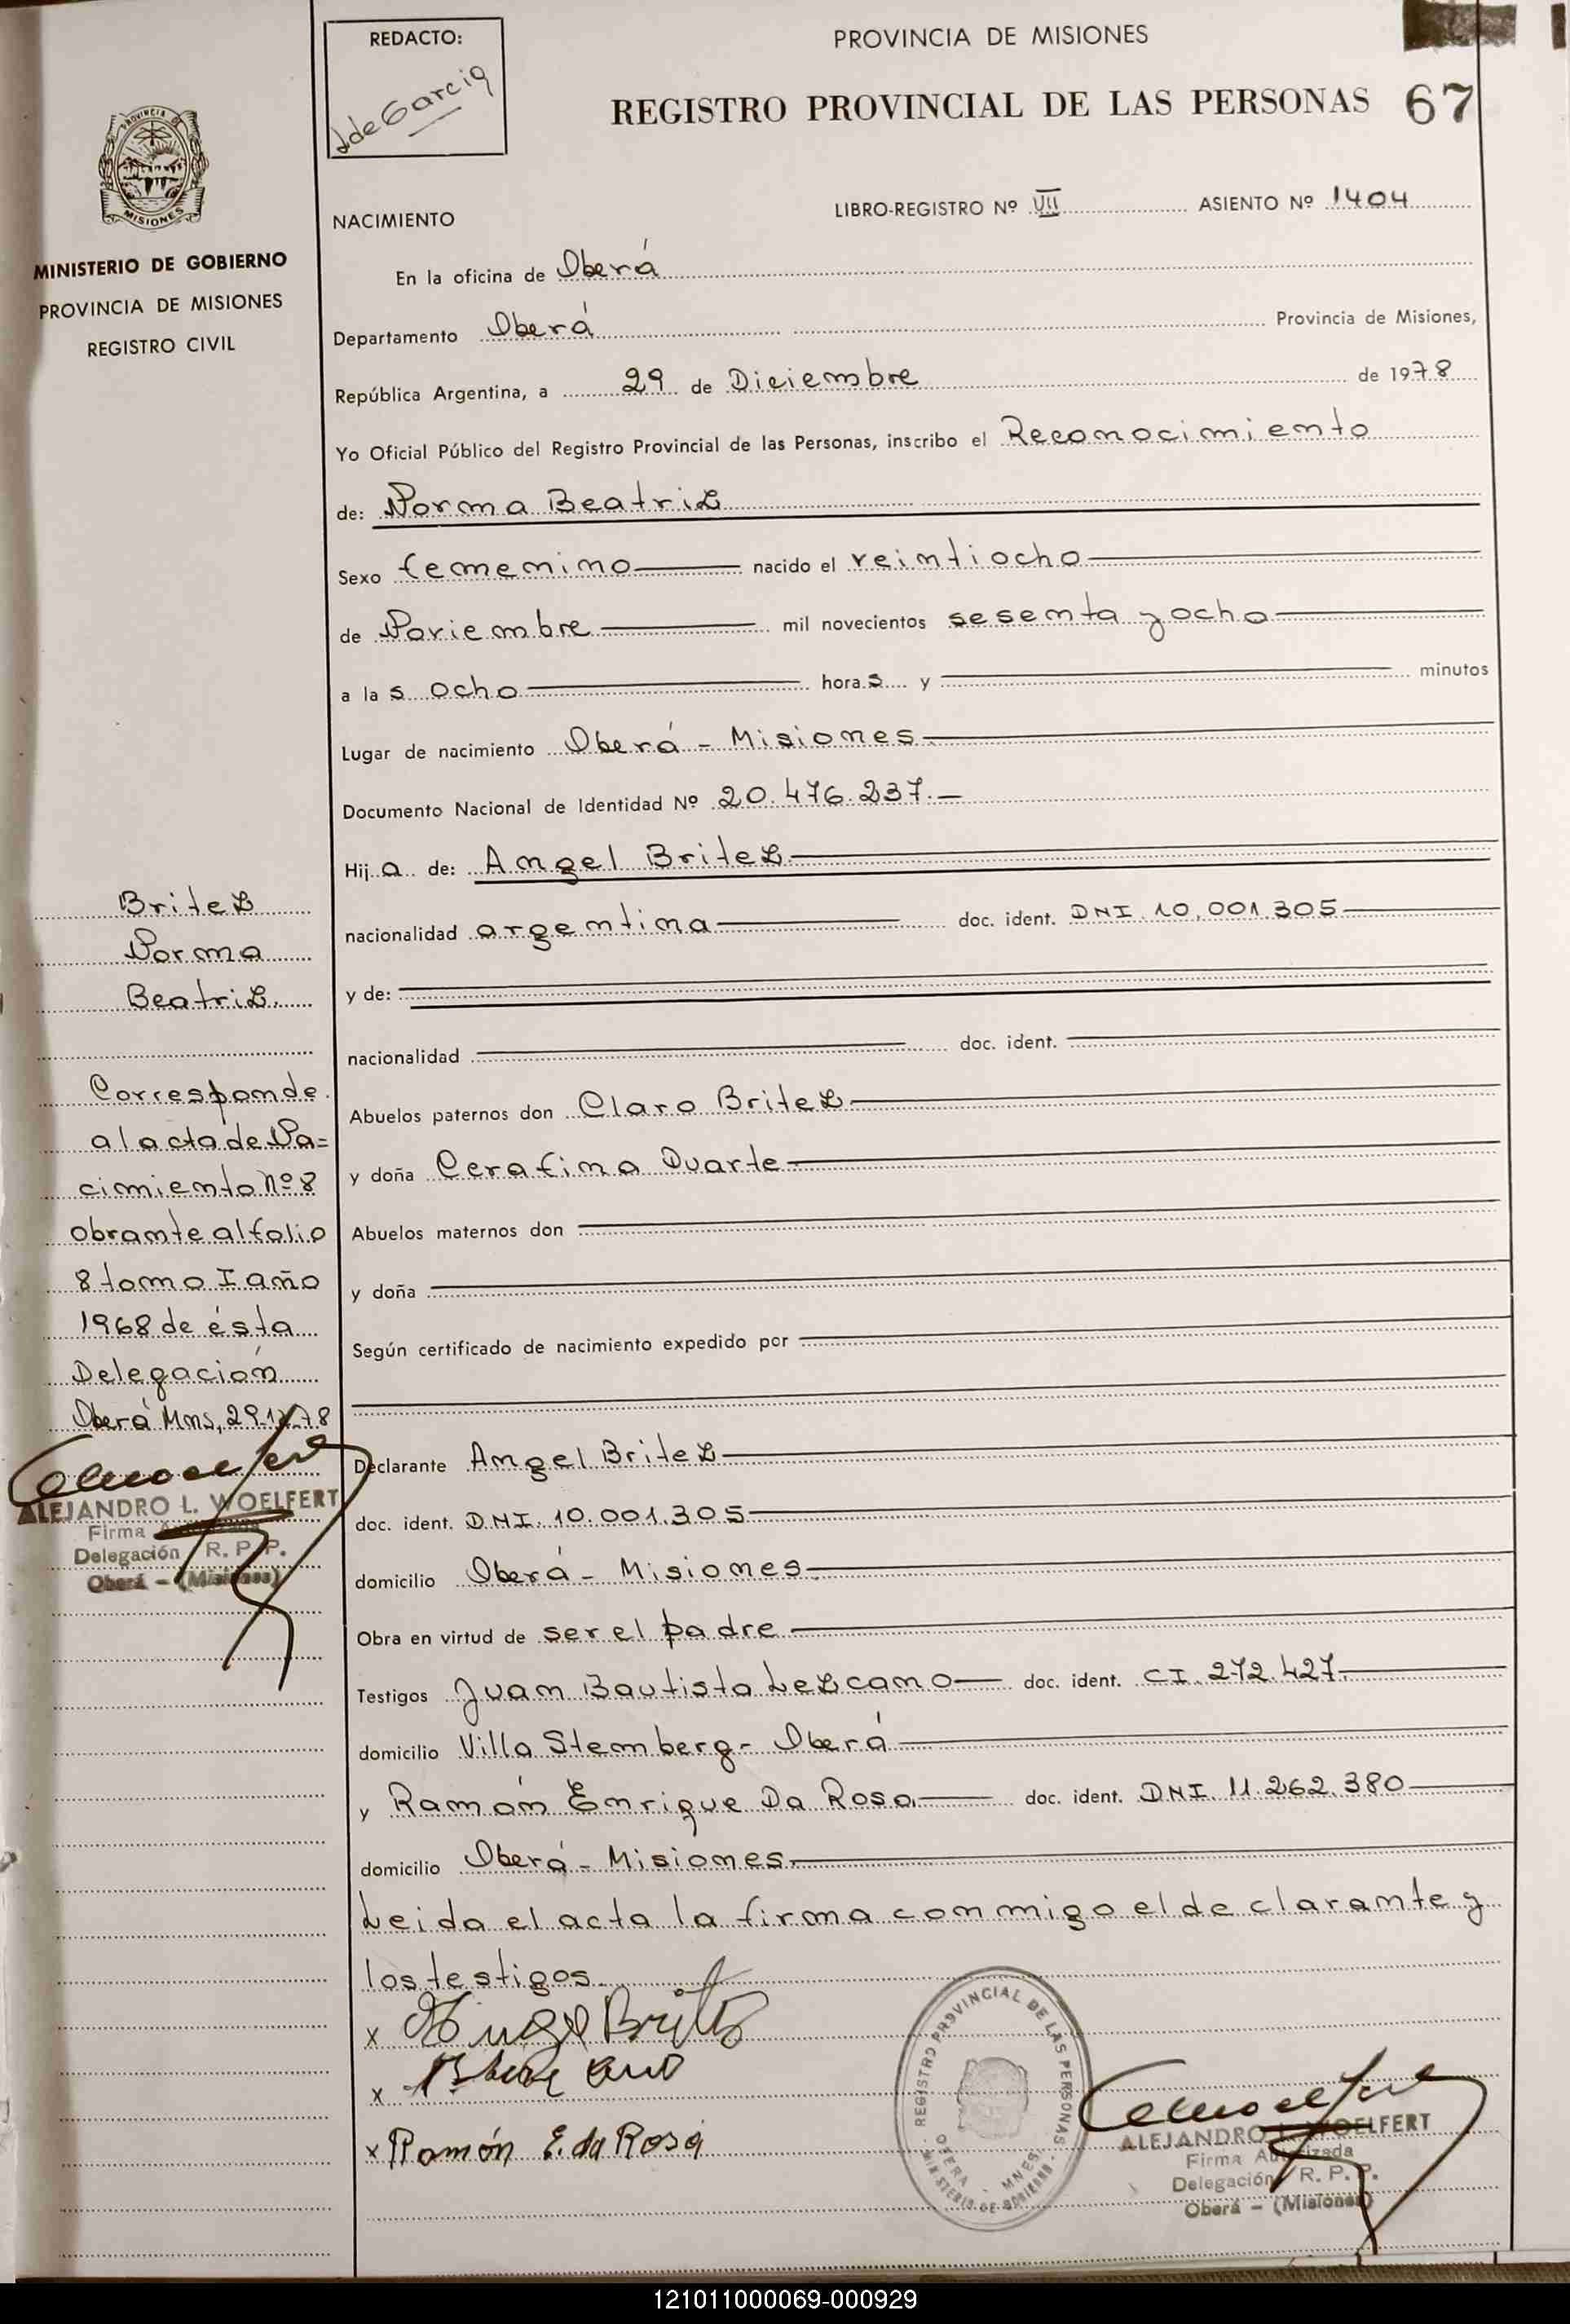 REDACTO:
PROVINCIA DE MISIONES
de Garcia
REGISTRO PROVINCIAL DE LAS PERSONAS 67
PROVINCIA DE
MISIONES
MINISTERIO DE GOBIERNO
PROVINCIA DE MISIONES
REGISTRO CIVIL
NACIMIENTO
LIBRO-REGISTRO Nº VII ASIENTO Nº 1404
En la oficina de Oberá
Departamento Oberá Provincia de Misiones,
República Argentina, a 29 de Diciembre de 1978
Yo Oficial Público del Registro Provincial de las Personas, inscribo el Reconocimiento
de: Norma Beatriz
Sexo femenino nacido el veintiocho
de Noviembre mil novecientos sesenta y ocho
a las ocho horas y minutos
Lugar de nacimiento Oberá - Misiones
Documento Nacional de Identidad Nº 20.476.237.-
Hija de: Angel Britez
nacionalidad argentina doc. ident. DNI. 10.001.305
y de:
nacionalidad doc. ident.
Abuelos paternos don Claro Britez
y doña Cerafina Duarte
Abuelos maternos don
y doña
Según certificado de nacimiento expedido por
Declarante Angel Britez
doc. ident. DNI. 10.001.305
domicilio Oberá - Misiones
Obra en virtud de ser el padre
Testigos Juan Bautista Lezcano doc. ident. CI. 272.427.
domicilio Villa Stemberg - Oberá
y Ramón Enrique Da Rosa doc. ident. DNI. 11.262.380
domicilio Oberá - Misiones
Leida el acta la firma conmigo el declarante y
los testigos.
x Angel Britez
x
x Ramón E. da Rosa
Britez
Norma
Beatriz
Corresponde
al acta de Na=
cimiento nº 8
obrante al folio
8 tomo I año
1968 de ésta
Delegación
Oberá Mns, 29-12-78
ALEJANDRO L. WOELFERT
Firma
Delegación R. P. P.
Oberá - (Misiones)
REGISTRO PROVINCIAL DE LAS PERSONAS
MINISTERIO DE GOBIERNO
OBERA - MNES.
ALEJANDRO L. WOELFERT
Firma Autorizada
Delegación R. P. P.
Oberá - (Misiones)
121011000069-000929